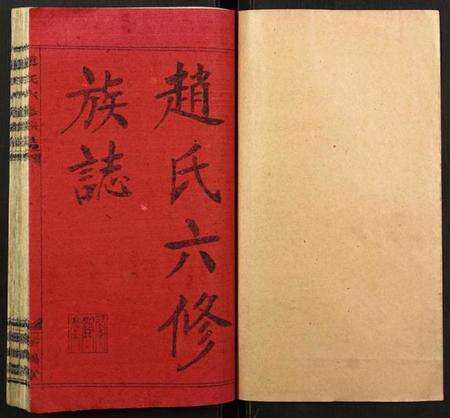 趙氏六修
族誌